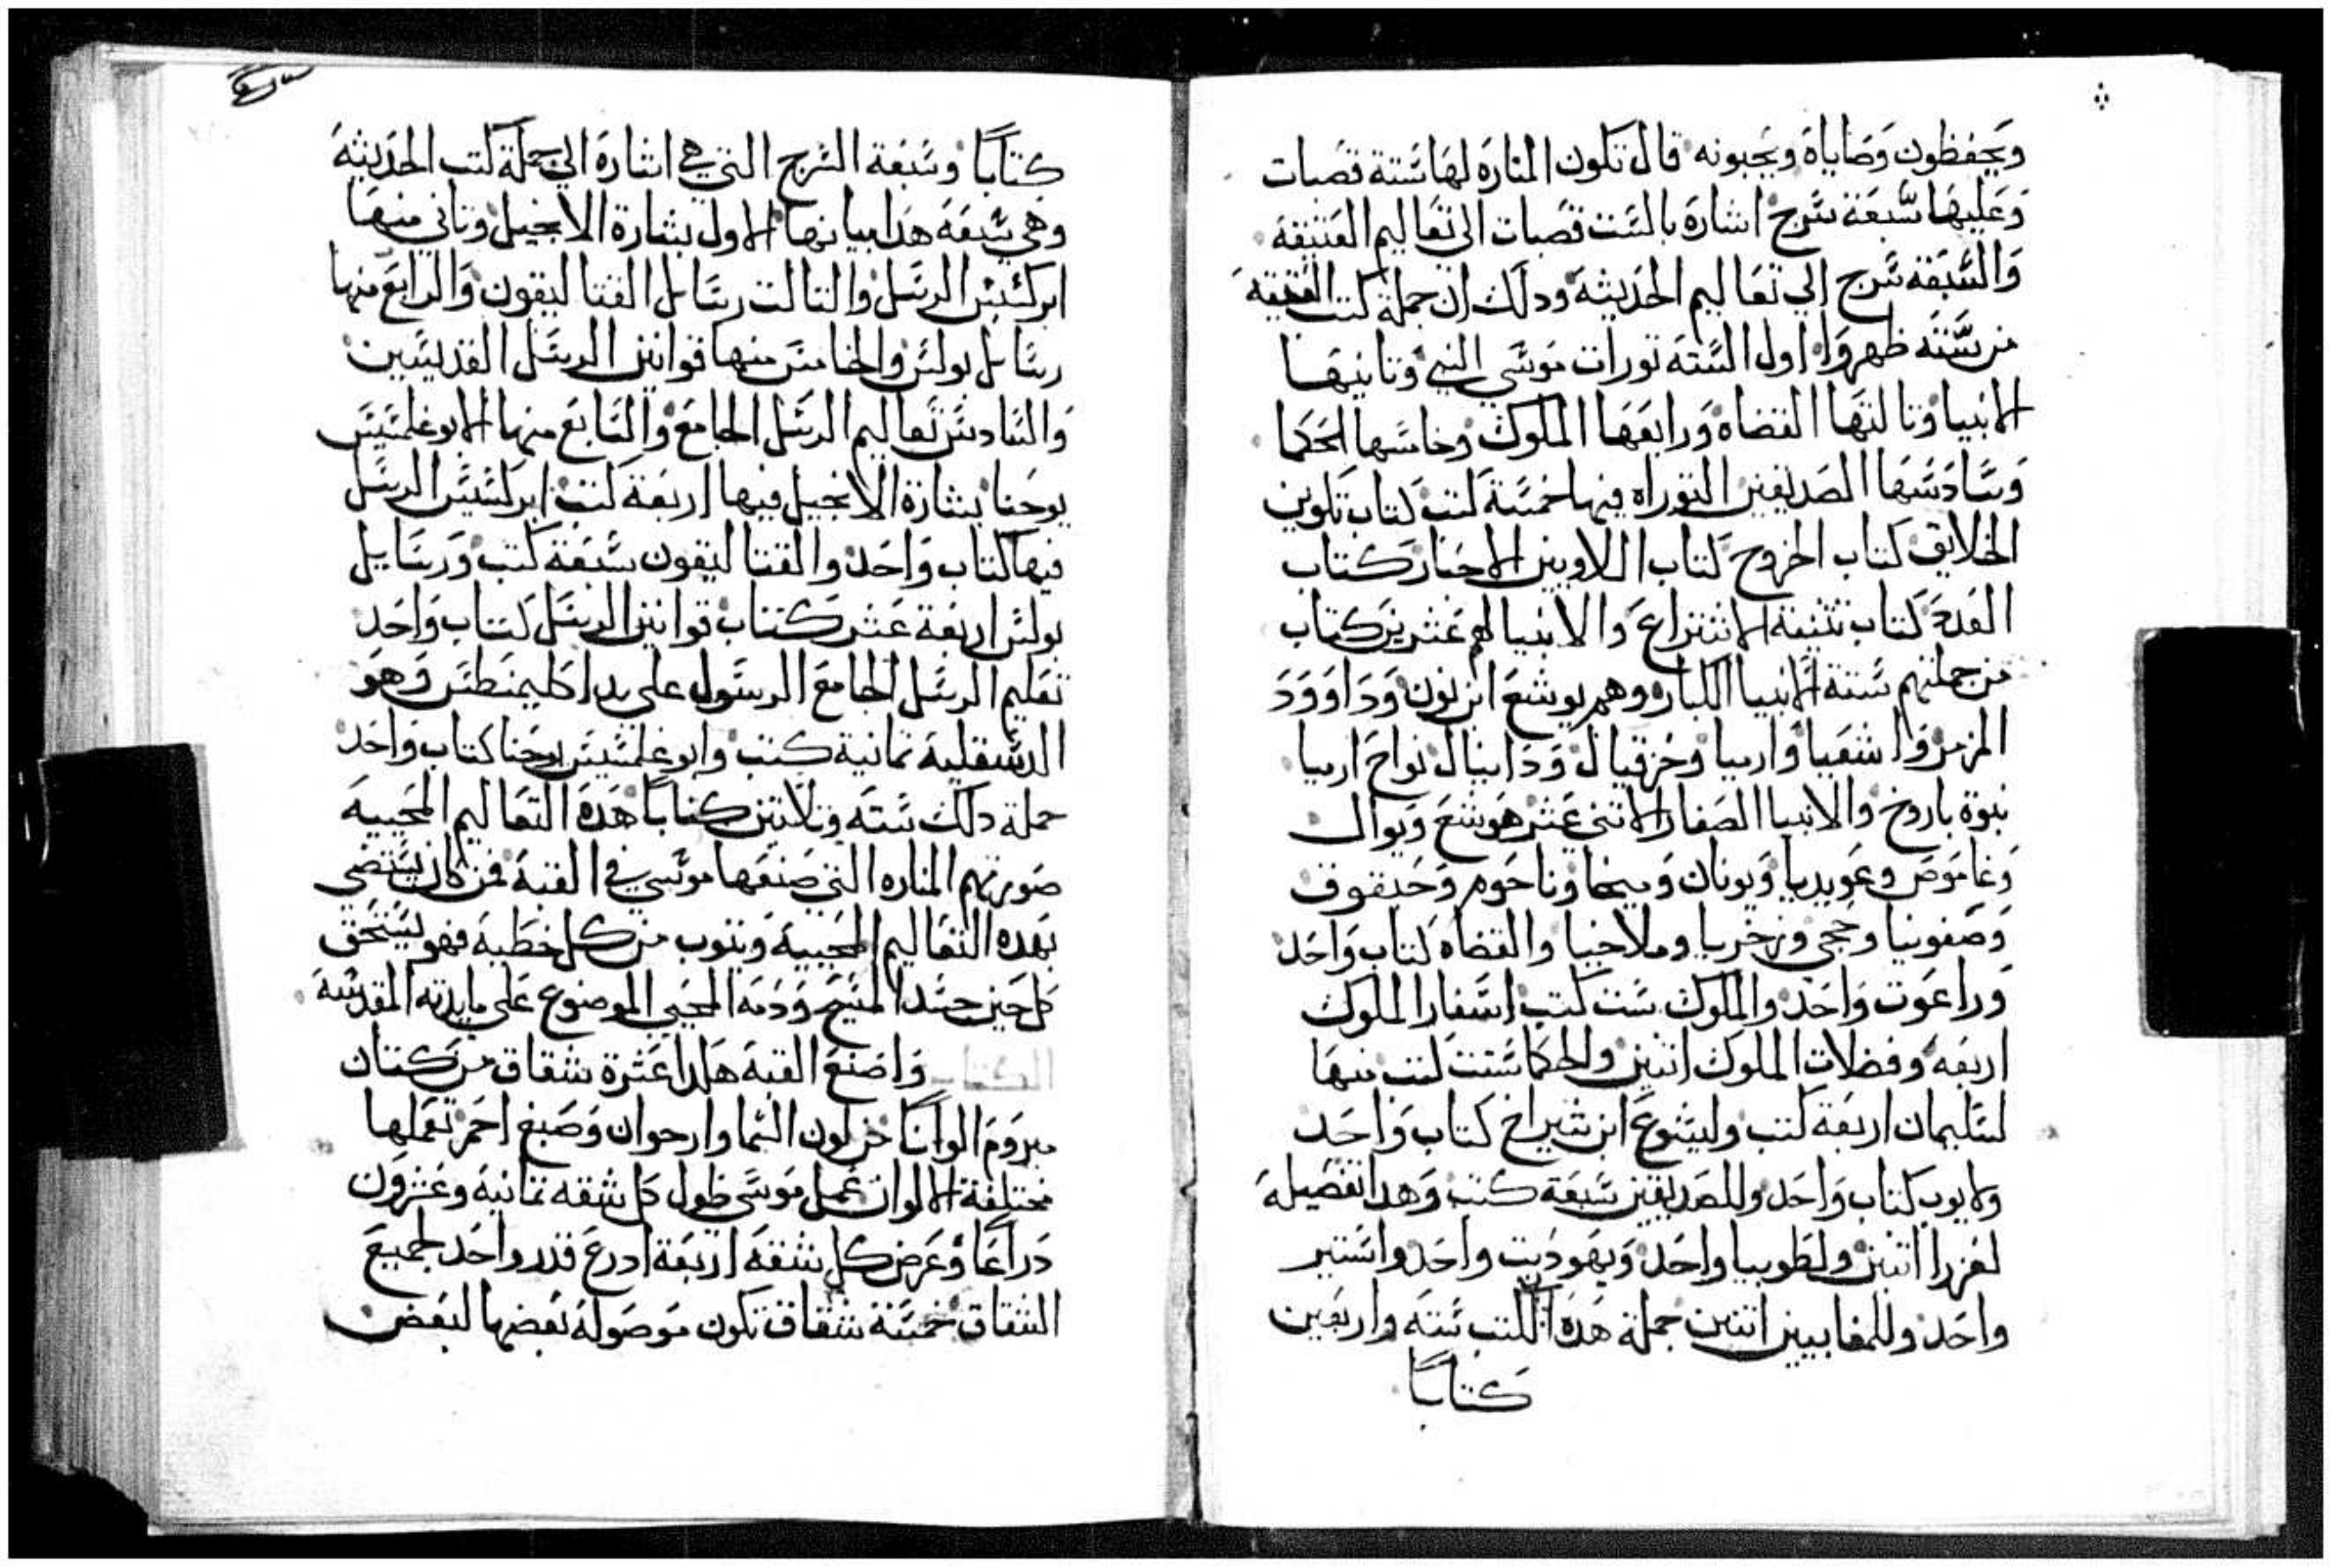 ويحفظون وصاياه ويحبونه قال تكون المناره لها ستة قصبات
وعليها سبعة سرج اشارة بالست قصبات الى تعاليم العتيقة
والسبعة سرج الي تعاليم الحديثة ودلك ان جملة كتب العتيقة
من ستة ظهروا اول الستة تورات موسي النبي وتانيها
الانبيا وتالتها القضاة ورابعها الملوك وخامسها الحكما
وسادسها الصديقين التوراه فيها خمسة كتب كتاب تكوين
الخلايق كتاب الخروج كتاب اللاويين الاحبار كتاب
العدد كتاب تتنية الاشتراع والانبيا لهم عشرين كتاب
من جملتهم ستة الانبيا الكبار وهم يوشع ابن نون وداوود
المزمر واشعيا وارميا وحزقيال ودانيال نواح ارميا
نبوة باروخ والانبيا الصغار الاتني عشر هوشع ويوال
وغاموص وعوبديا ويونان وميخا وناحوم وحبقوق
وصفونيا وحجي وزخريا وملاخيا والقضاه كتاب واحد
وراعوت واحد والملوك ست كتب اسفار الملوك
اربعة وفضلات الملوك اتنين والحكما ستت كتب منها
لسليمان اربعة كتب وليشوع ابن شيراخ كتاب واحد
ولايوب كتاب واحد وللصديقين سبعة كتب وهدا تفصيله
لعزرا اتنين ولطوبيا واحد ويهوديت واحد واستير
واحد وللمقابيين اتنين جملة هده الكتب ستة واربعين
كتاباً
كتاباً وسبعة السرج التي هي اشارة الي جملة كتب الحديثة
وهي سبعة هدا بيانها الاول بشارة الانجيل وتاني منها
ابركسيس الرسل والتالت رسايل القتاليقون والرابع منها
رسايل بولس والخامس منها قوانين الرسل القديسين
والسادس تعاليم الرسل الجامع والسابع منها الابوغلمسيس
يوحنا بشارة الانجيل فيها اربعة كتب ابركسيس الرسل
فيها كتاب واحد والقتاليقون سبعة كتب ورسايل
بولس اربعة عشر كتاب قوانين الرسل كتاب واحد
تعليم الرسل الجامع الرسول على يد اكليمنطس وهو
الدسقلية تمانية كتب وابوغلمسيس يوحنا كتاب واحد
جملة دلك ستة وتلاتين كتاباً هده التعاليم المحيية
صورتهم المناره التي صنعها موسي في القبة فمن كان يستضي
بهده التعاليم المحيية ويتوب من كل خطية فهو يستحق
كل حين جسد المسيح ودمه المحيي الموضوع على مايدته المقدسة
الكتاب واصنع القبة هكدا عشرة شقاق من كتان
مبروم الوانا من لون السما وارجوان وصبغ احمر تعملها
مختلفة الالوان عمل موسى طول كل شقه تمانية وعشرون
دراعا وعرض كل شقة اربعة ادرع قدر واحد لجميع
الشقاق خمسة شقاق تكون موصولة بعضها لبعض